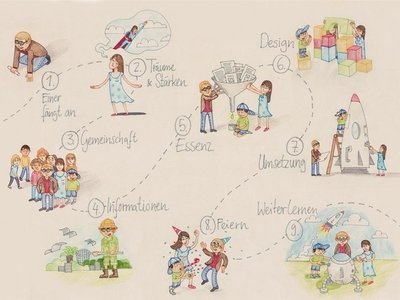 1.
Einer
fängt an
2.
Träume
& Stärken
3
Gemeinschaft
4
Informationen
5.
Essenz
6.
Design
7
Umsetzung
8.
Feiern
9
Weiterlernen